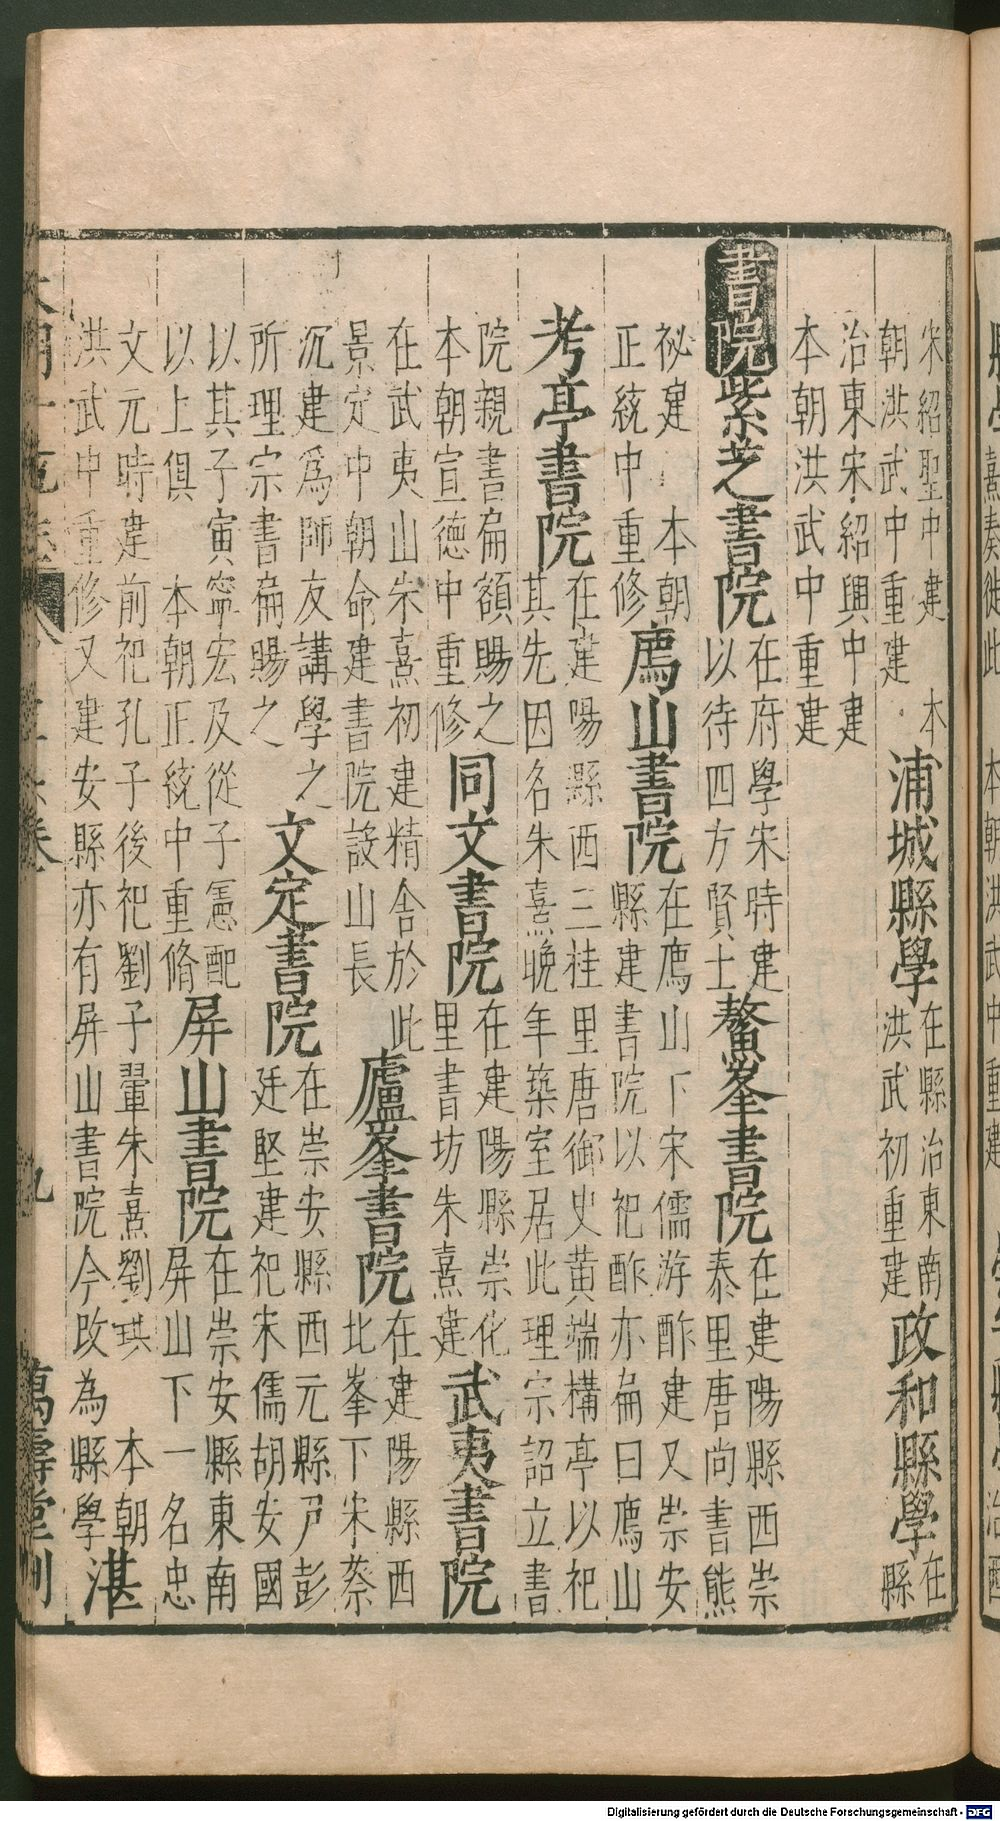 宋紹聖中建 本
朝洪武中重建
浦城縣學
在縣治東南
洪武初重建
政和縣學
在
縣
治東宋紹興中建
本朝洪武中重建
書院
紫芝書院
在府學宋時建
以待四方賢士
鰲峯書院
在建陽縣西崇
泰里唐尚書熊
祕建 本朝
正統中重修
廌山書院
在廌山下宋儒游酢建又崇安
縣建書院以祀酢亦扁曰廌山
考亭書院
在建陽縣西三桂里唐御史黃端構亭以祀
其先因名朱熹晚年築室居此理宗詔立書
院親書扁額賜之
本朝宣德中重修
同文書院
在建陽縣崇化
里書坊朱熹建
武夷書院
在武夷山朱熹初建精舍於此
景定中朝命建書院設山長
廬峯書院
在建陽縣西
北峯下宋蔡
沉建爲師友講學之
所理宗書扁賜之
文定書院
在崇安縣西元縣尹彭
廷堅建祀宋儒胡安國
以其子寅寧宏及從子憲配
以上俱 本朝正統中重脩
屏山書院
在崇安縣東南
屏山下一名忠
文元時建前祀孔子後祀劉子翬朱熹劉珙 本朝
洪武中重修又建安縣亦有屏山書院今改為縣學
湛
大明一統志 九 萬壽堂刊
Digitalisierung gefördert durch die Deutsche Forschungsgemeinschaft - DFG